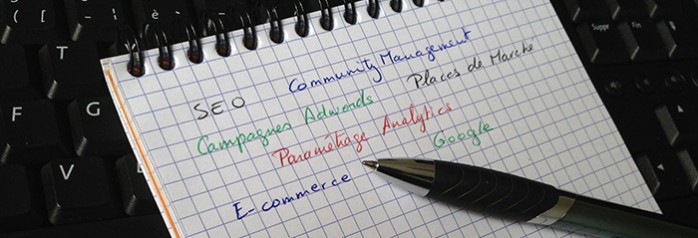 SEO
Community Management
Places de Marché
Campagnes Adwords
Paramétrage Analytics
Google
E-commerce
T
F
G
V
( [
- |
è `
Suppr
Fin